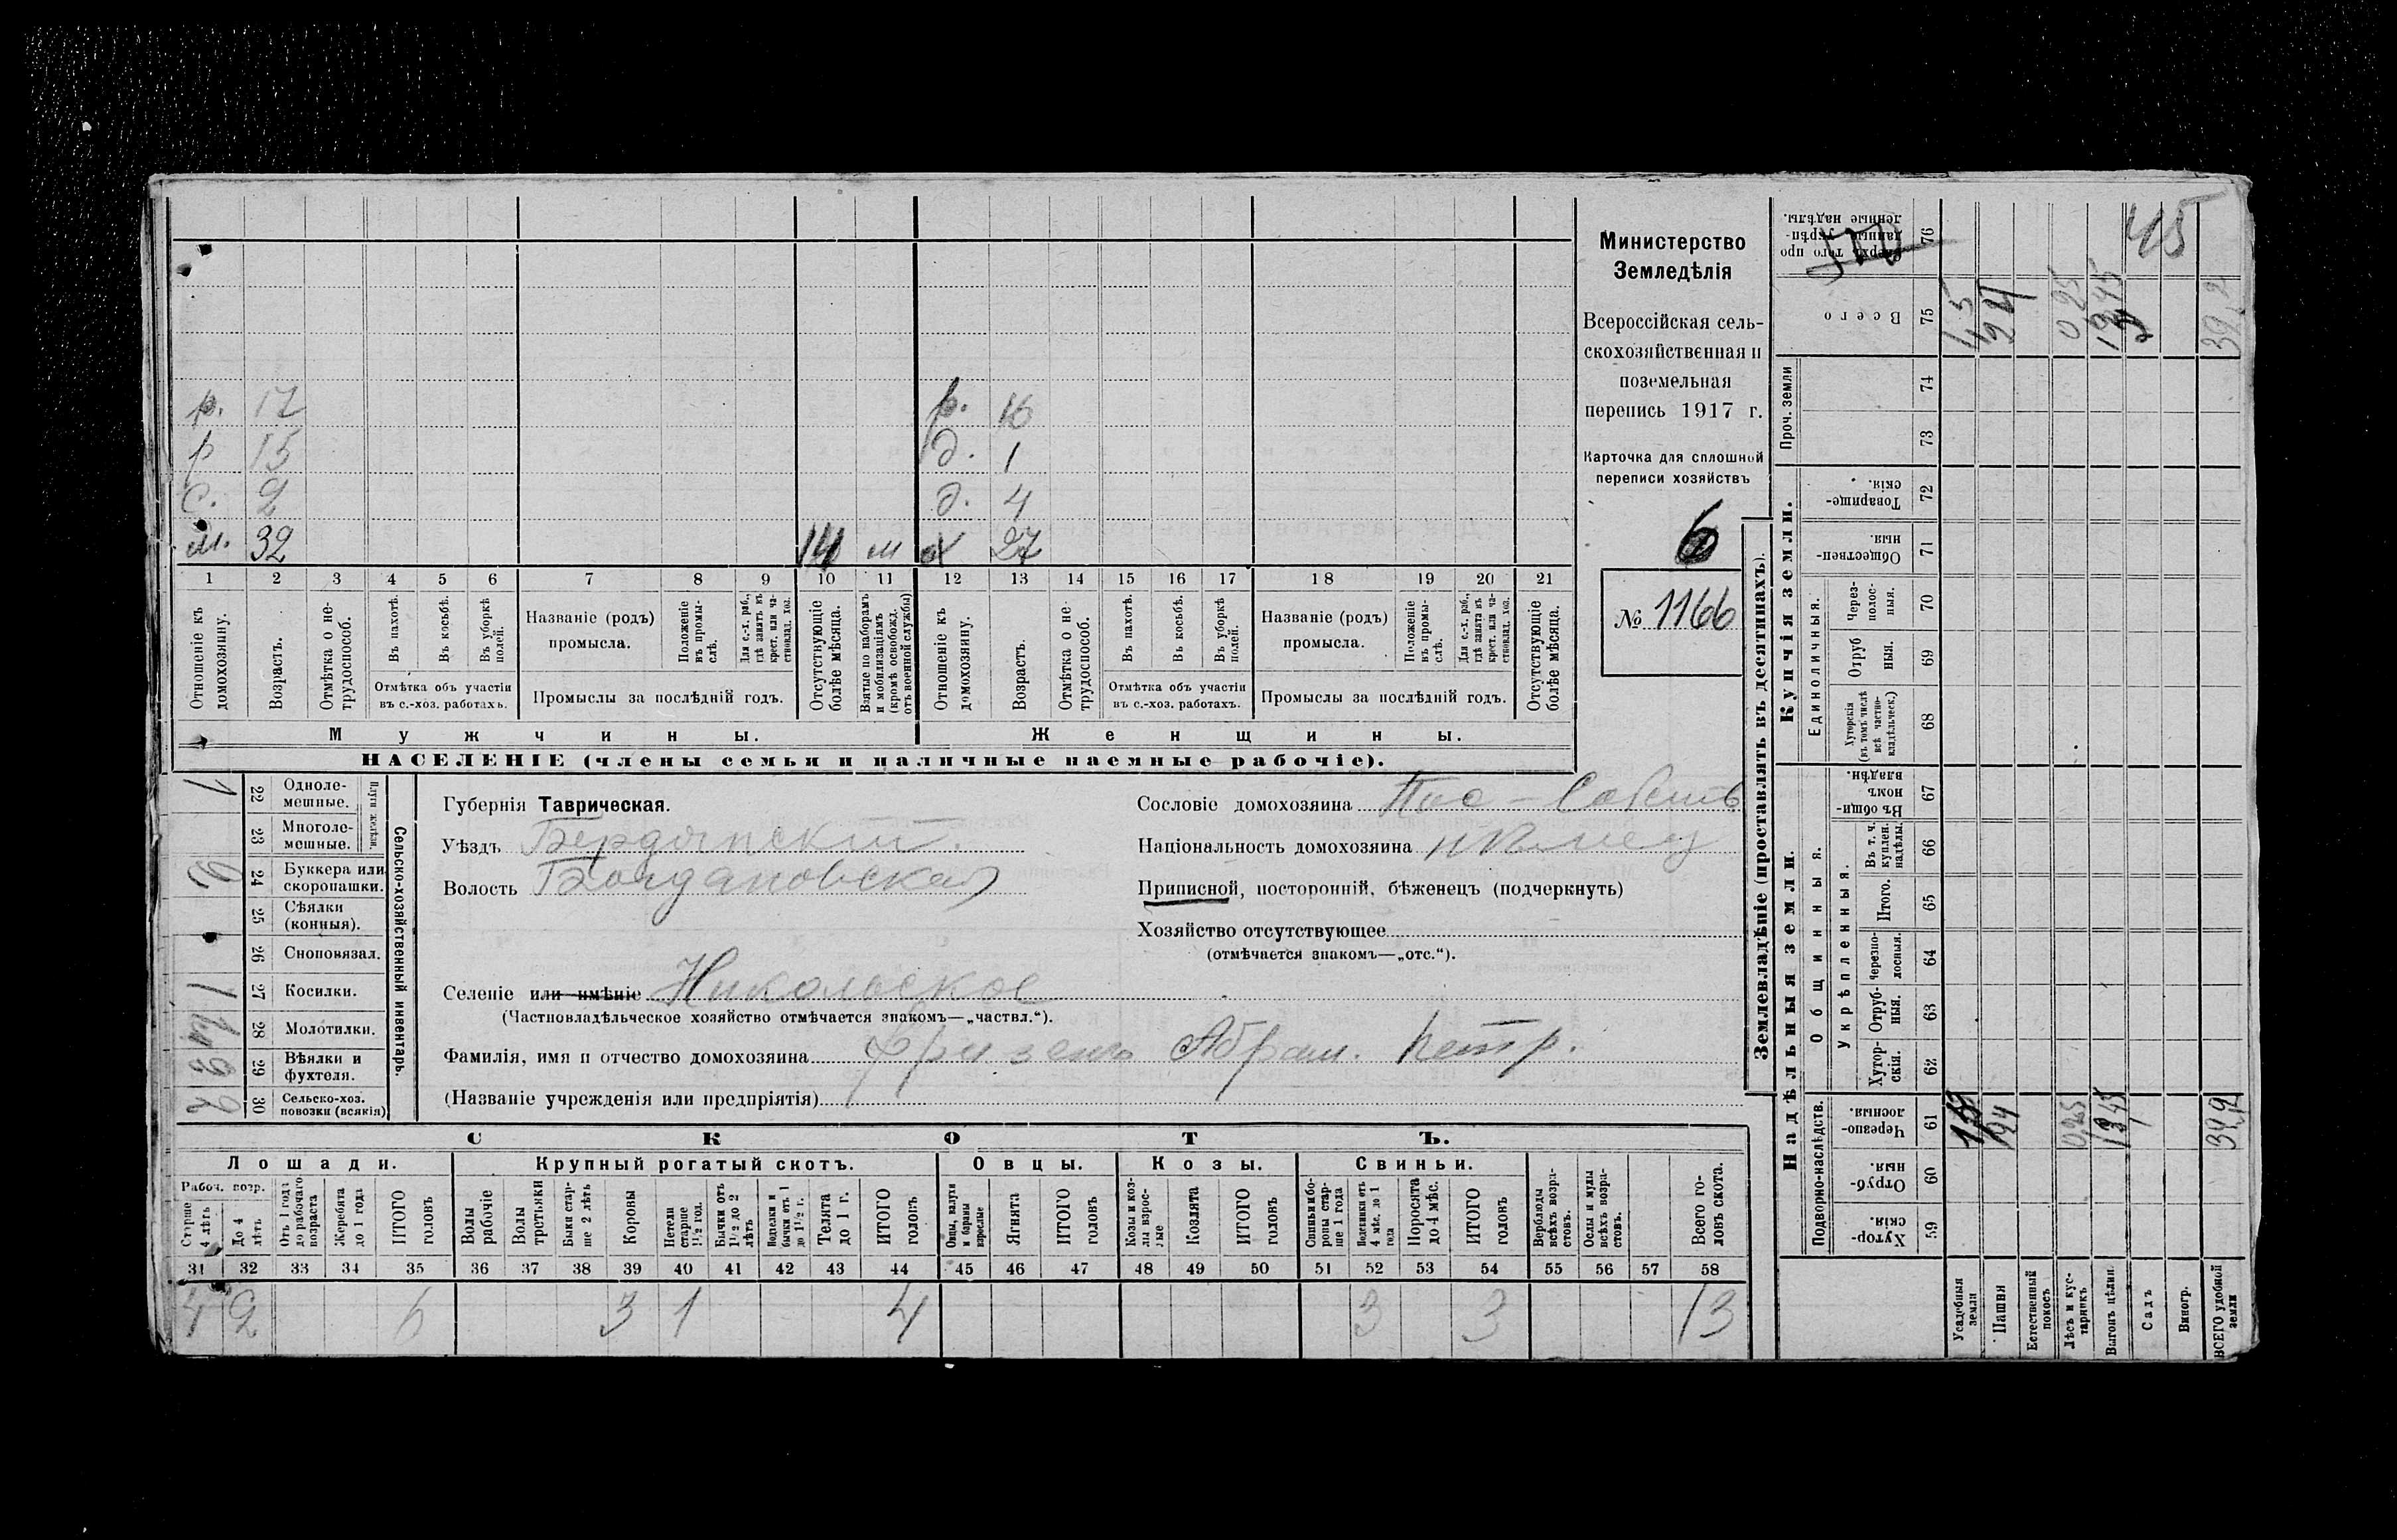 Министерство
Земледѣлія
Всероссійская сель-
скохозяйственная и
поземельная
перепись 1917 г.
Карточка для сплошной
переписи хозяйствъ
6
№ 1166
р. 17 р. 16
р 15 д. 1
с. 2 д. 4
м. 32 м 27
1 2 3 4 5 6 7 8 9 10 11 12 13 14 15 16 17 18 19 20 21
Отношеніе къ домохозяину.
Возрастъ.
Отмѣтка о не-трудоспособ.
Въ пахотѣ.
Въ косьбѣ.
Въ уборкѣ полей.
Отмѣтка объ участіи
въ с.-хоз. работахъ.
Названіе (родъ)
промысла.
Положеніе въ промы-слѣ.
Для с.-х. раб., гдѣ занятъ въ крест. или ча-стновлад. хоз.
Промыслы за послѣдній годъ.
Отсутствующіе болѣе мѣсяца.
Взятые по наборамъ и мобилизаціямъ (кромѣ освобожд. отъ военной службы)
Отношеніе къ домохозяину.
Возрастъ.
Отмѣтка о не-трудоспособ.
Въ пахотѣ.
Въ косьбѣ.
Въ уборкѣ полей.
Отмѣтка объ участіи
въ с.-хоз. работахъ.
Названіе (родъ)
промысла.
Положеніе въ промы-слѣ.
Для с.-х. раб., гдѣ занята въ крест. или ча-стновлад. хоз.
Промыслы за послѣдній годъ.
Отсутствующіе болѣе мѣсяца.
Мужчины. Женщины.
НАСЕЛЕНІЕ (члены семьи и наличные наемные рабочіе).
Сельско-хозяйственный инвентарь.
Плуги желѣзн.
22 Одноле-мешные. 1
23 Многоле-мешные.
24 Буккера или скоропашки.
25 Сѣялки (конныя).
26 Сноповязал.
27 Косилки. 1
28 Молотилки.
29 Вѣялки и фухтеля.
30 Сельско-хоз. повозки (всякія) 2
Губернія Таврическая.
Уѣздъ Бердянскій.
Волость Богдановская
Селеніе или имѣніе Никольское
(Частновладѣльческое хозяйство отмѣчается знакомъ—„частвл.“).
Фамилія, имя и отчество домохозяина Фризенъ Абрам. Петр.
(Названіе учрежденія или предпріятія)
Сословіе домохозяина Пос-Собств
Національность домохозяина нѣмец
Приписной, посторонній, бѣженецъ (подчеркнуть)
Хозяйство отсутствующее
(отмѣчается знакомъ—„отс.“).
СКОТЪ.
Лошади. Крупный рогатый скотъ. Овцы. Козы. Свиньи.
Рабоч. возр.
Старше 4 лѣтъ
До 4 лѣтъ
Отъ 1 года до рабочаго возраста
Жеребята до 1 года
ИТОГО головъ
Волы рабочіе
Волы третьяки
Быки стар-ше 2 лѣтъ
Коровы
Нетели старше 1½ год.
Бычки отъ 1½ до 2 лѣтъ
Телята до 1 г.
ИТОГО головъ
Ягнята
ИТОГО головъ
Козы и коз-лы взрос-лые
Козлята
ИТОГО головъ
Свиньи и бо-ровы стар-ше 1 года
Подсвинки отъ 4 мѣс. до 1 года
Поросята до 4 мѣс.
ИТОГО головъ
Верблюды всѣхъ возра-стовъ.
Ослы и мулы всѣхъ возра-стовъ.
Всего го-ловъ скота.
31 32 33 34 35 36 37 38 39 40 41 42 43 44 45 46 47 48 49 50 51 52 53 54 55 56 57 58
4 2 6 3 1 4 3 3 13
Землевладѣніе (проставлять въ десятинахъ).
Купчія земли.
Надѣльныя земли.
Проч. земли
Единоличныя.
Общинныя.
Укрѣпленныя.
Подворно-наслѣдств.
Сверхъ того про-данные укрѣп-ленные надѣлы. 76
Всего 75
74
73
Товарище-скія. 72
Обществен-ныя. 71
Через-полос-ныя. 70
Отруб ныя. 69
Хуторскія (въ томъ числѣ всѣ частно-владѣльческ.) 68
Въ общи-номъ владѣн. 67
Въ т. ч. куплен. надѣлы. 66
Итого. 65
Черезпо-лосныя. 64
Отруб-ныя. 63
Хутор-скія. 62
Черезпо-лосныя. 61
Отруб-ныя. 60
Хутор-скія. 59
Усадебныя земли
Пашня
Естественный покосъ
Лѣсъ и кус-тарникъ
Выгонъ цѣлин.
Садъ
Виногр.
ВСЕГО удобной земли
45